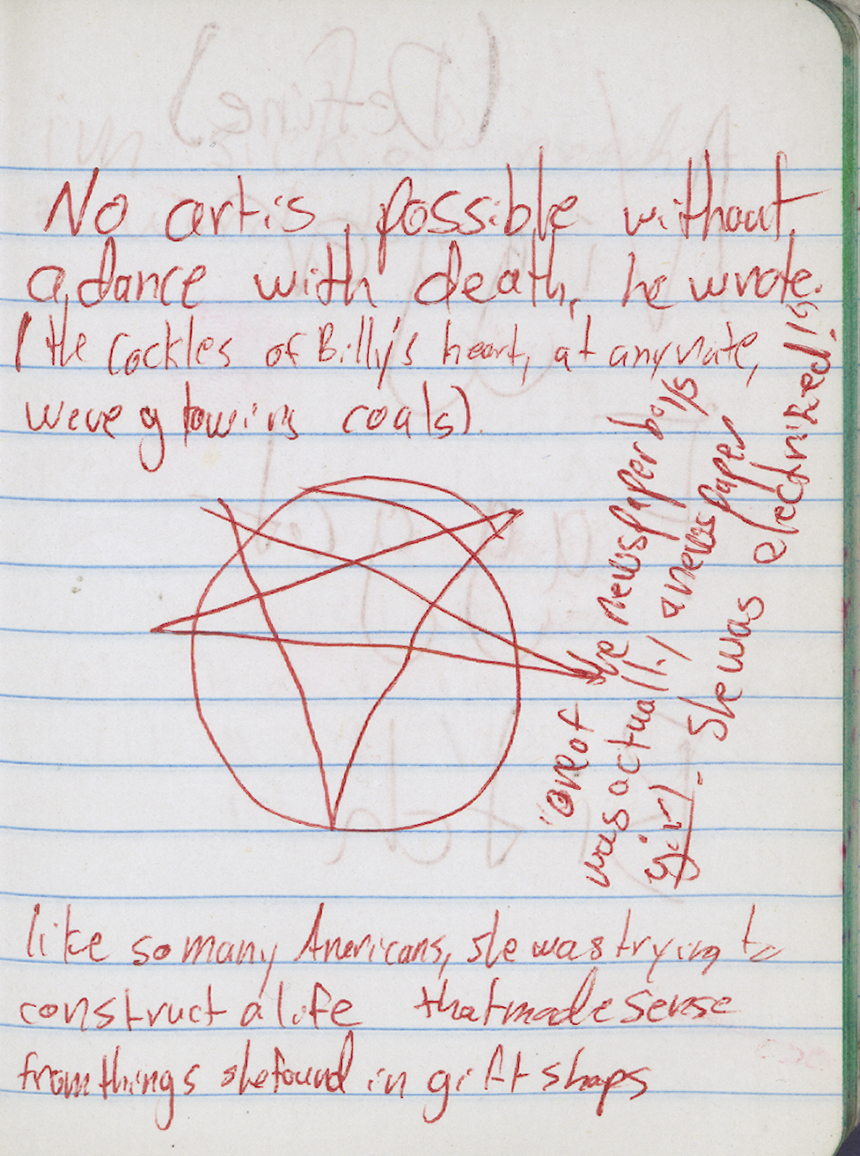 No art is possible without
a dance with death, he wrote.
(the cockles of Billy's heart, at any rate,
were glowing coals).
"one of the newspaper boys
was actually a newspaper
girl. She was electrified!"
like so many Americans, she was trying to
construct a life that made sense
from things she found in gift shops